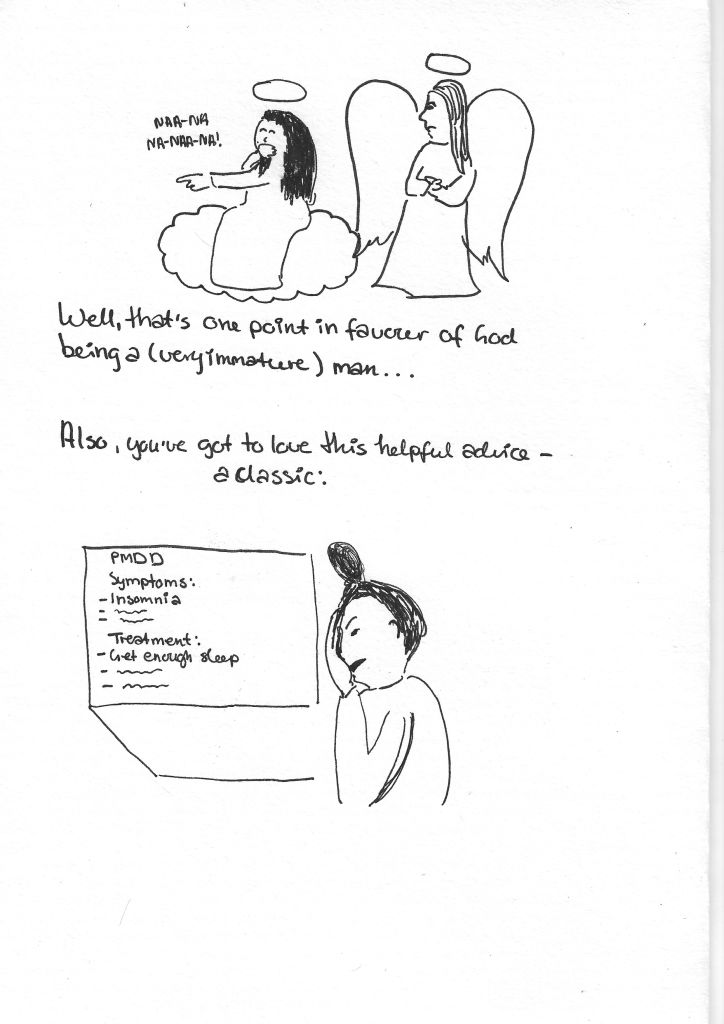 NAA-NA
NA-NAA-NA!
Well, that's one point in favour of God
being a (very immature) man...
Also, you've got to love this helpful advice -
a classic:
PMDD
Symptoms:
- Insomnia
Treatment:
- Get enough sleep